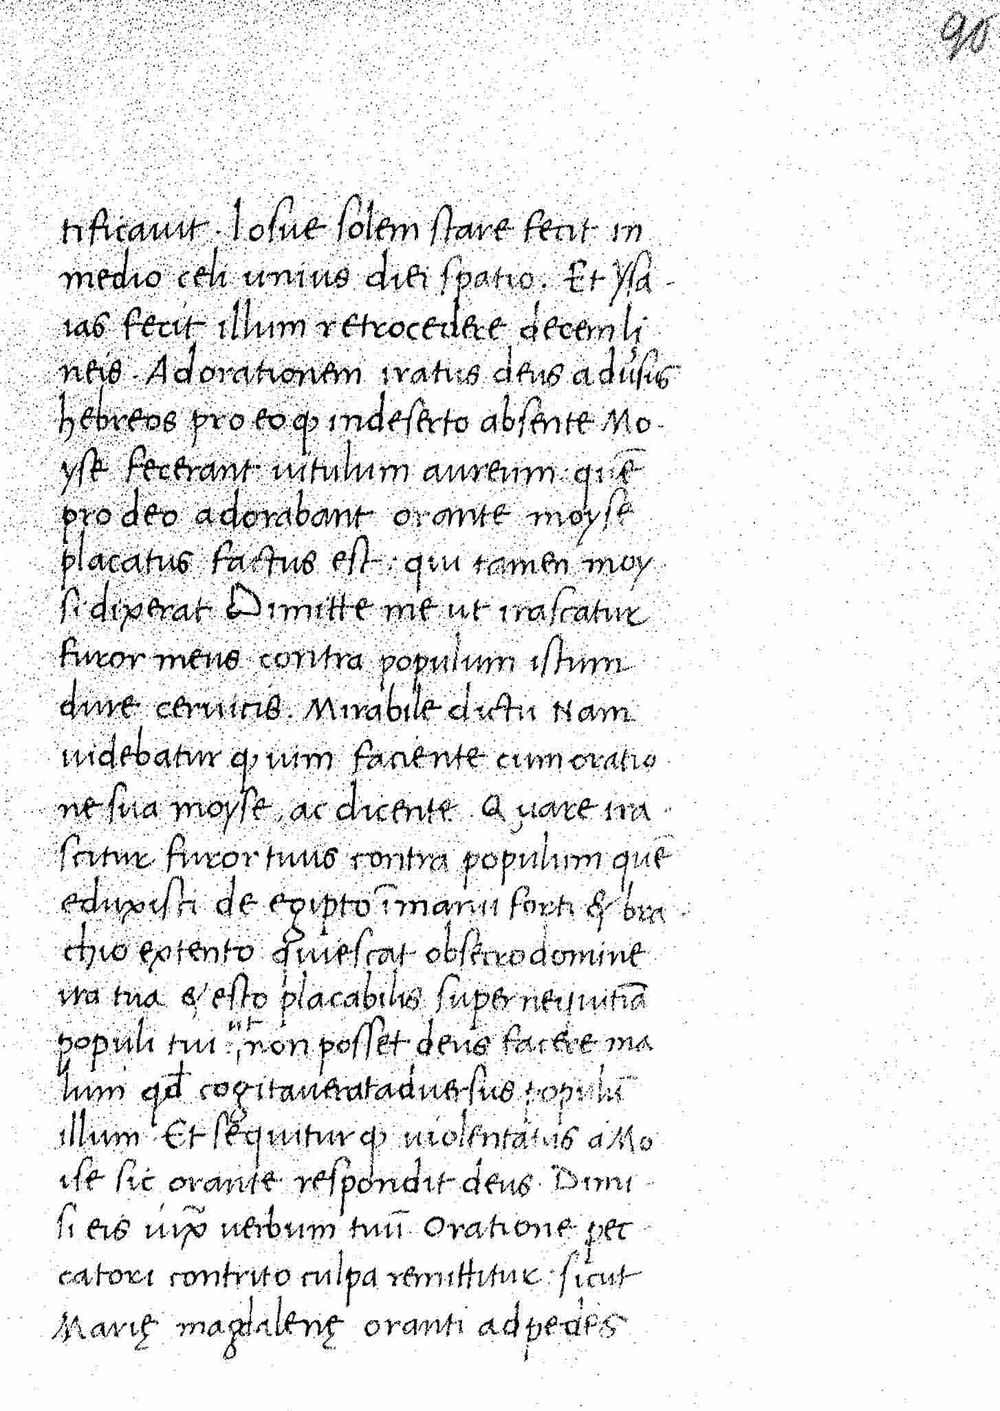 90
tificauit. Iosue solem stare fecit in
medio celi unius diei spatio. Et ysa-
ias fecit illum retrocedere decem li
neis. Adorationem iratus deus adũsus
hebreos pro eo ꝙ indeserto absente Mo-
yse fecerant uitulum aureum quẽ
pro deo adorabant orante moyse
placatus factus est: qui tamen moy
si dixerat Dimitte me ut irascatur
furor meus contra populum istum
dure ceruicis. Mirabile dictu Nam
uidebatur ꝙ uim faciente cum oratio
ne sua moyse, ac dicente. Quare ira-
scitur furor tuus contra populum quẽ
eduxisti de egipto ĩ manu forti & bra-
chio extento Quiescat obsecro domine
ira tua & esto placabilis super nequitiã
populi tui: ut non posset deus facere ma
lum qđ cogitauerat aduersus populũ
illum Et sequitur ꝙ uiolentatus a Mo
ise sic orante respondit deus Dimi-
si eis iuxͣ uerbum tuũ Oratione pec
catori contrito culpa remittitur: sicut
Marię magdalenę oranti ad pedes